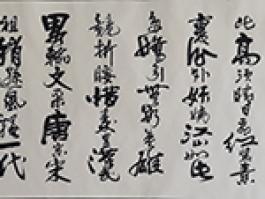 比高須晴日看紅裝素
裹分外妖嬈江山如此
多嬌引無數英雄
競折腰惜秦皇漢武
略輸文采唐宗宋
祖稍遜風騷一代